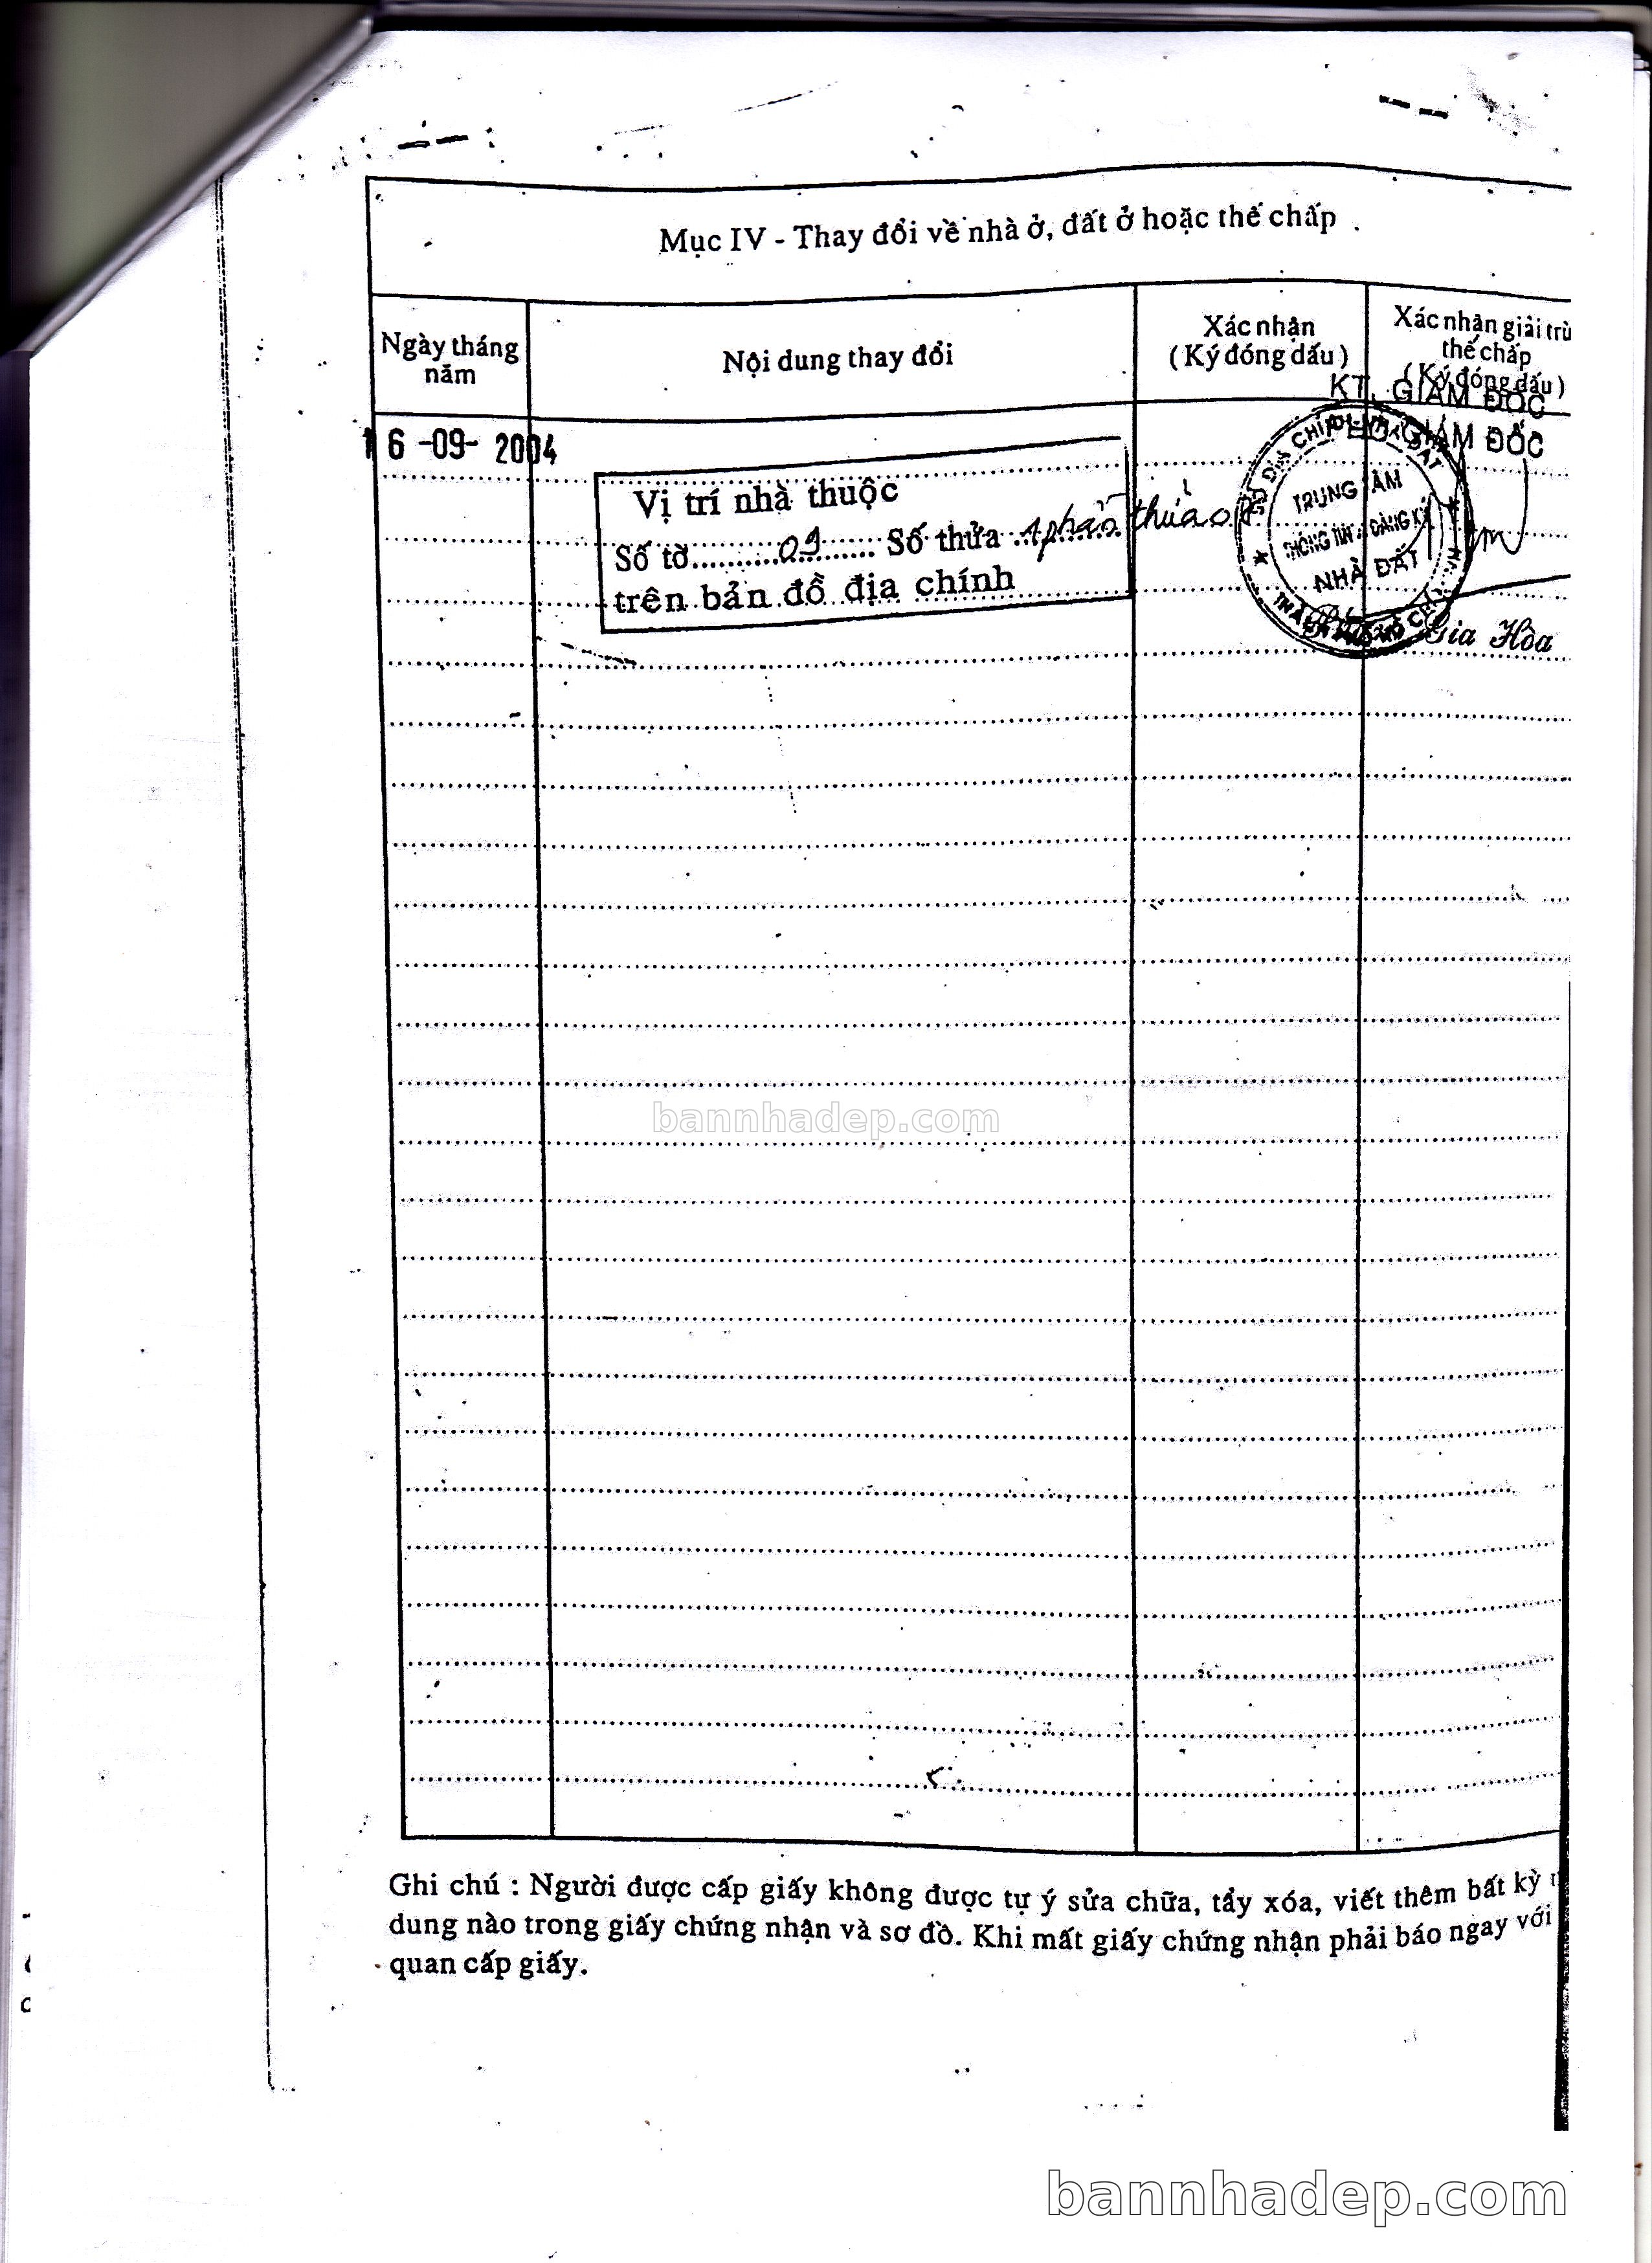 Mục IV - Thay đổi về nhà ở, đất ở hoặc thế chấp
Ngày tháng năm
Nội dung thay đổi
Xác nhận
( Ký đóng dấu )
Xác nhận giải trừ
thế chấp
( Ký đóng dấu )
KT. GIÁM ĐỐC
GIÁM ĐỐC
16 -09- 2004
Vị trí nhà thuộc
Số tờ 09 Số thửa 1 phần thửa
trên bản đồ địa chính
TRUNG TÂM
THÔNG TIN & ĐĂNG KÝ
NHÀ ĐẤT
Gia Hòa
bannhadep.com
Ghi chú : Người được cấp giấy không được tự ý sửa chữa, tẩy xóa, viết thêm bất kỳ
dung nào trong giấy chứng nhận và sơ đồ. Khi mất giấy chứng nhận phải báo ngay với
quan cấp giấy.
bannhadep.com